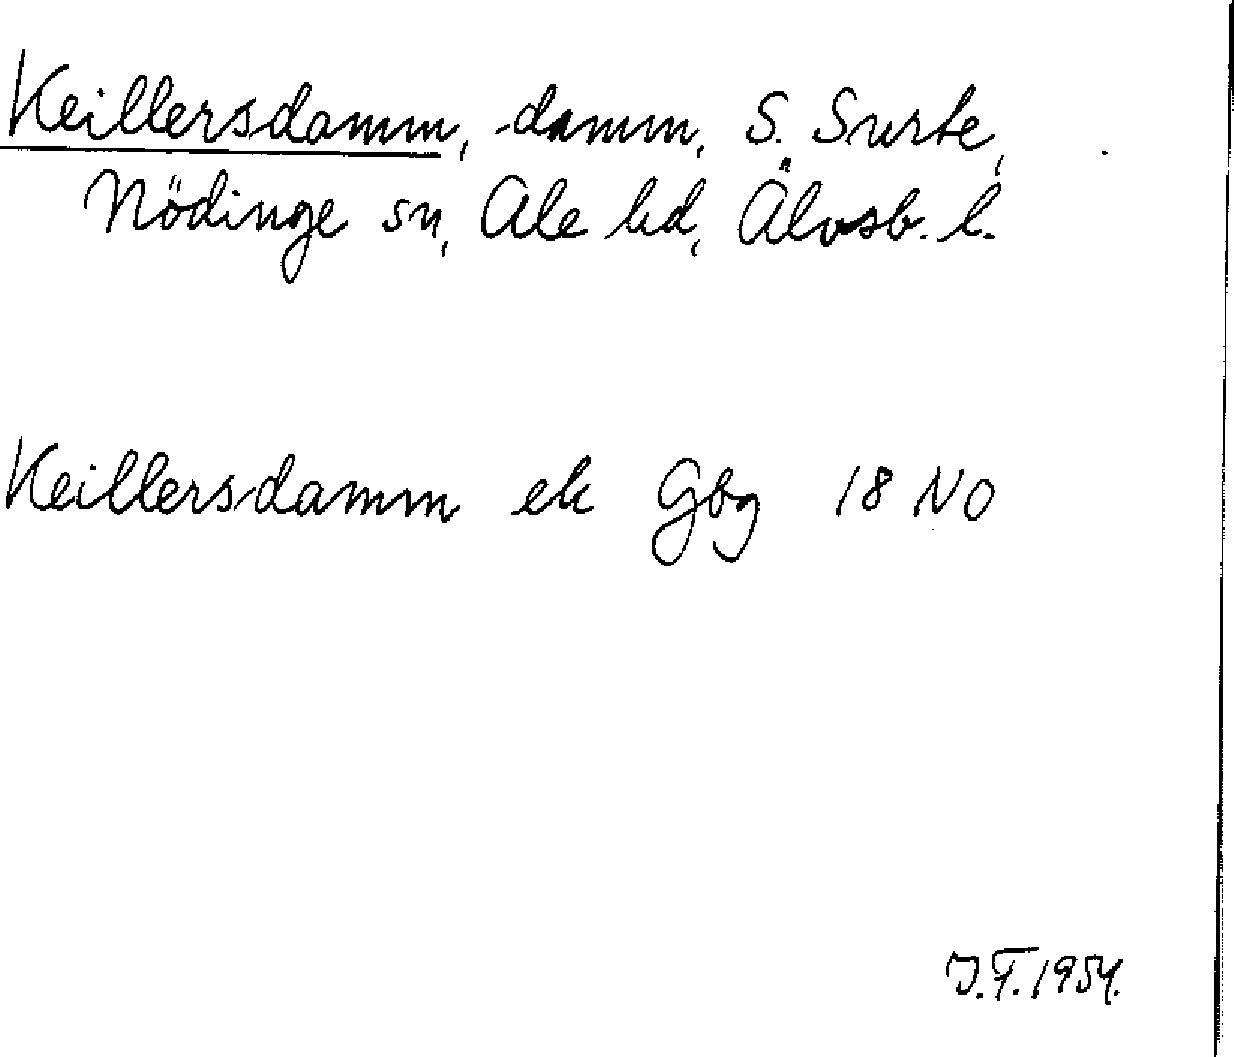 Keillersdamm, -damm, S. Surte,
Nödinge sn, Ale hd, Älvsb. l.
Keillersdamm ek Gbg 18 NO
J.F. 1954.